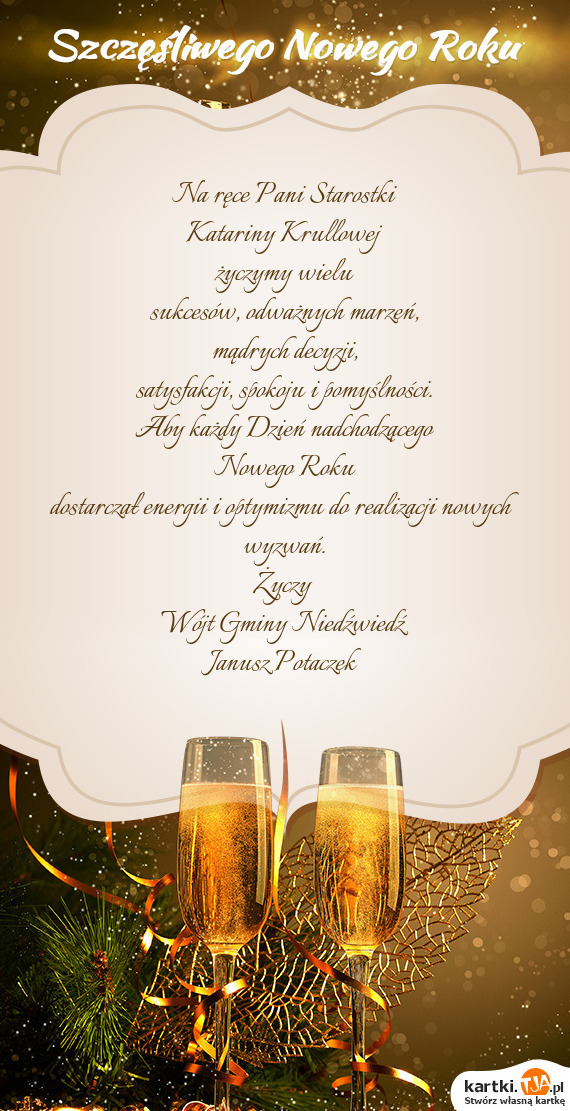 Szczęśliwego Nowego Roku
Na ręce Pani Starostki
Katariny Krullowej
życzymy wielu
sukcesów, odważnych marzeń,
mądrych decyzji,
satysfakcji, spokoju i pomyślności.
Aby każdy Dzień nadchodzącego
Nowego Roku
dostarczał energii i optymizmu do realizacji nowych
wyzwań.
Życzy
Wójt Gminy Niedźwiedź
Janusz Potaczek
kartki.TJA.pl
Stwórz własną kartkę